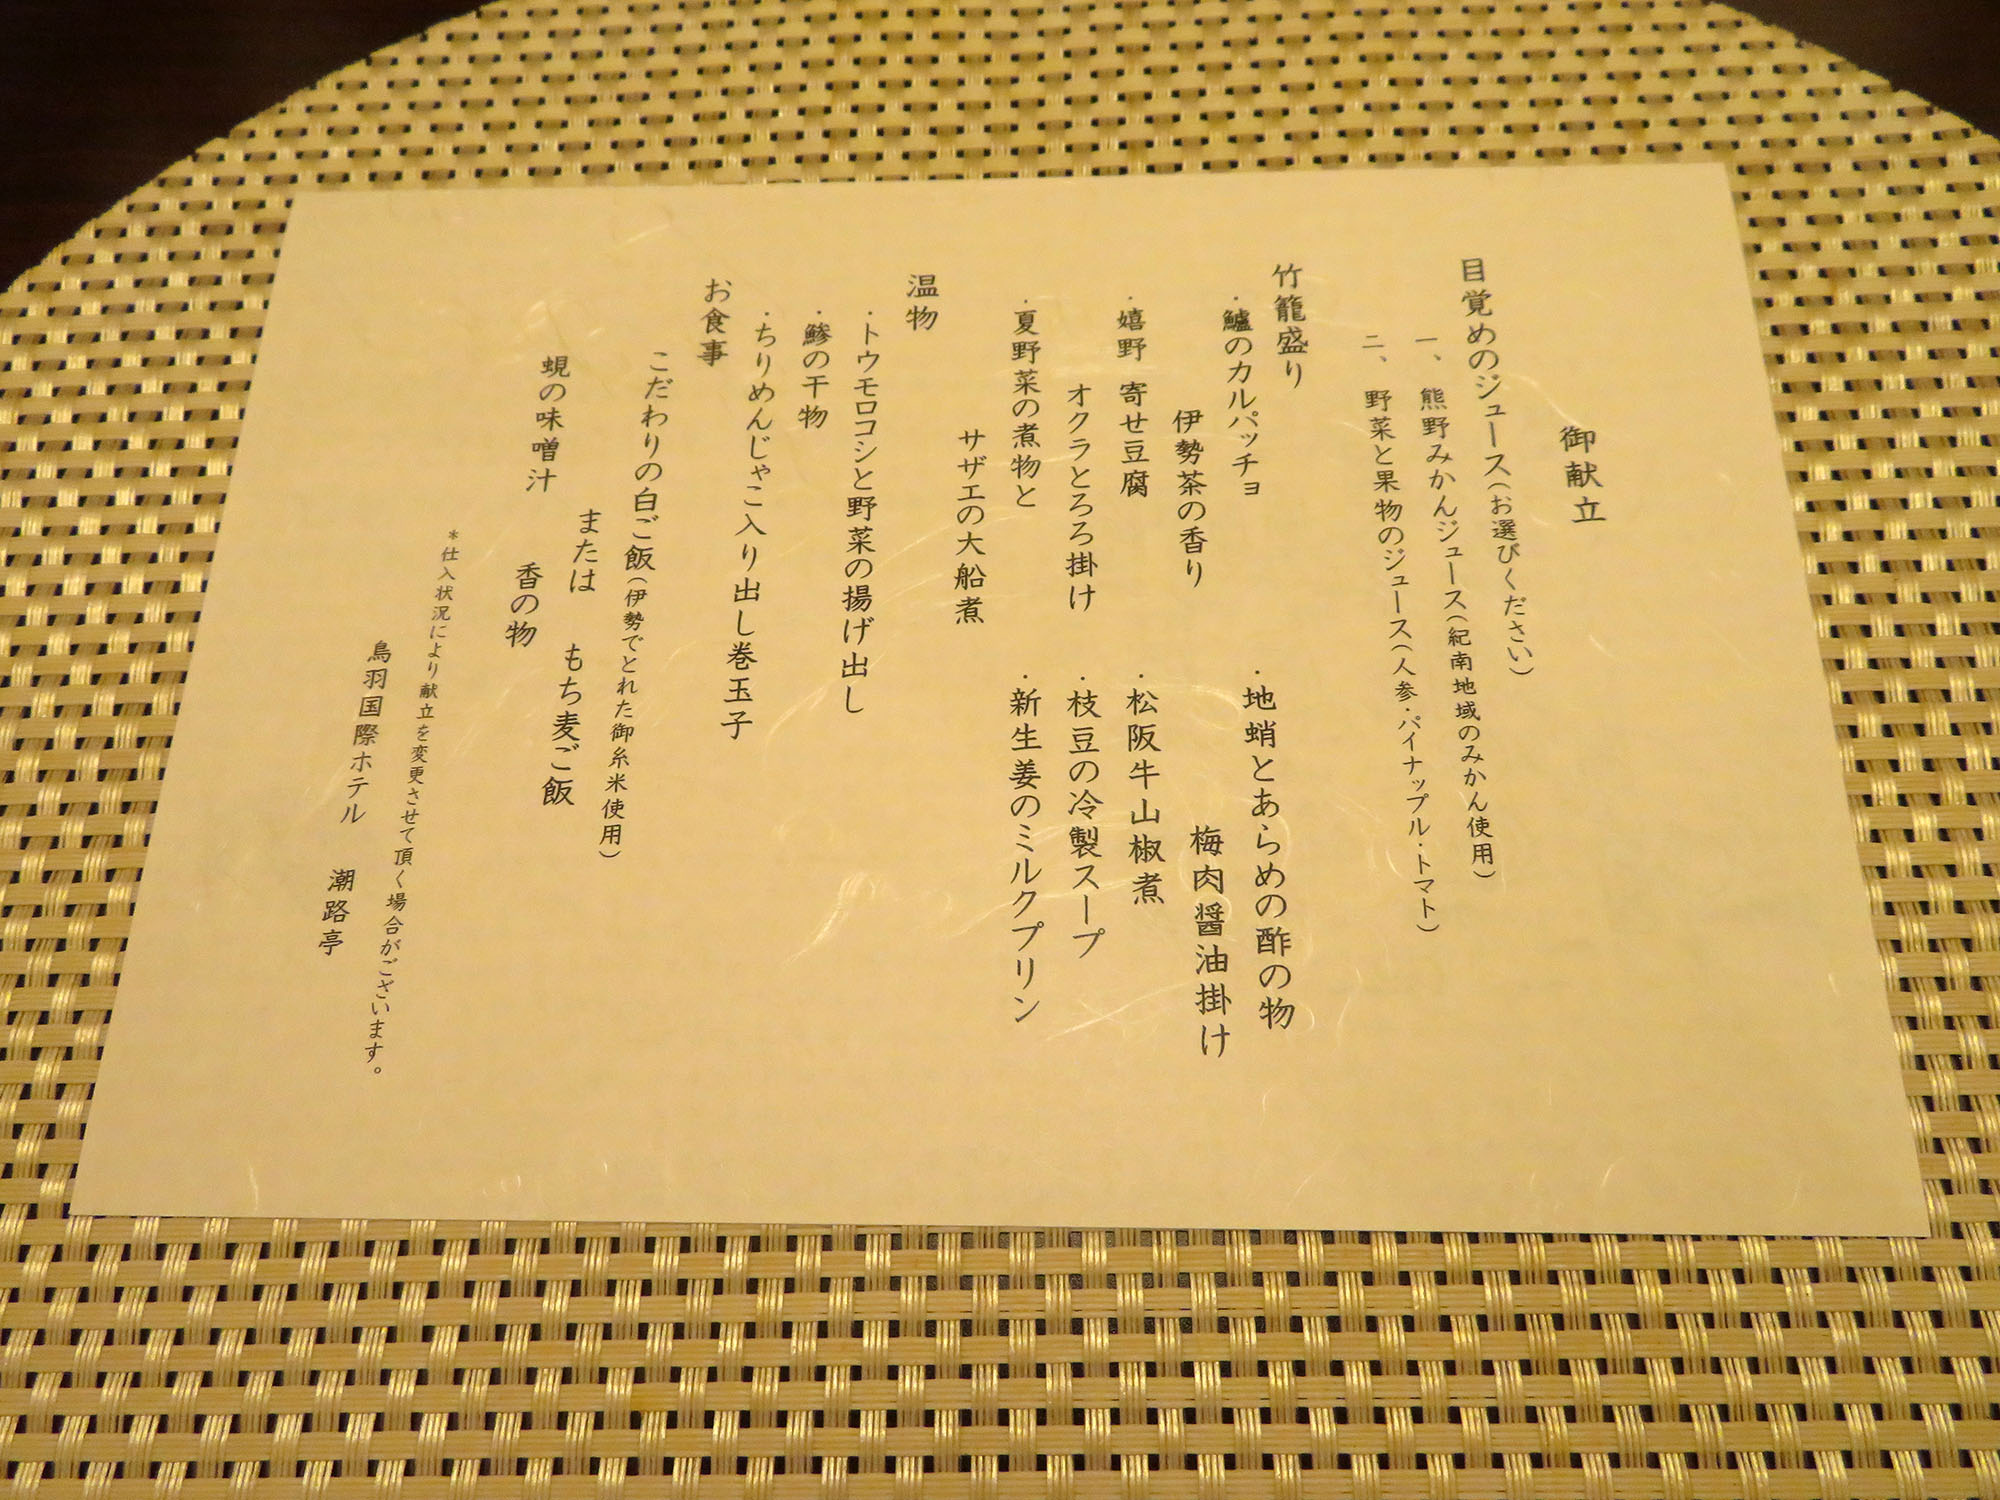 御献立
目覚めのジュース(お選びください)
一、熊野みかんジュース(紀南地域のみかん使用)
二、野菜と果物のジュース(人参・パイナップル・トマト)
竹籠盛り
・鱸のカルパッチョ
伊勢茶の香り
・嬉野 寄せ豆腐
オクラとろろ掛け
・夏野菜の煮物と
サザエの大船煮
・地蛸とあらめの酢の物
梅肉醤油掛け
・松阪牛山椒煮
・枝豆の冷製スープ
・新生姜のミルクプリン
温物
・トウモロコシと野菜の揚げ出し
・鯵の干物
・ちりめんじゃこ入り出し巻玉子
お食事
こだわりの白ご飯(伊勢でとれた御糸米使用)
または もち麦ご飯
蜆の味噌汁 香の物
*仕入状況により献立を変更させて頂く場合がございます。
鳥羽国際ホテル 潮路亭